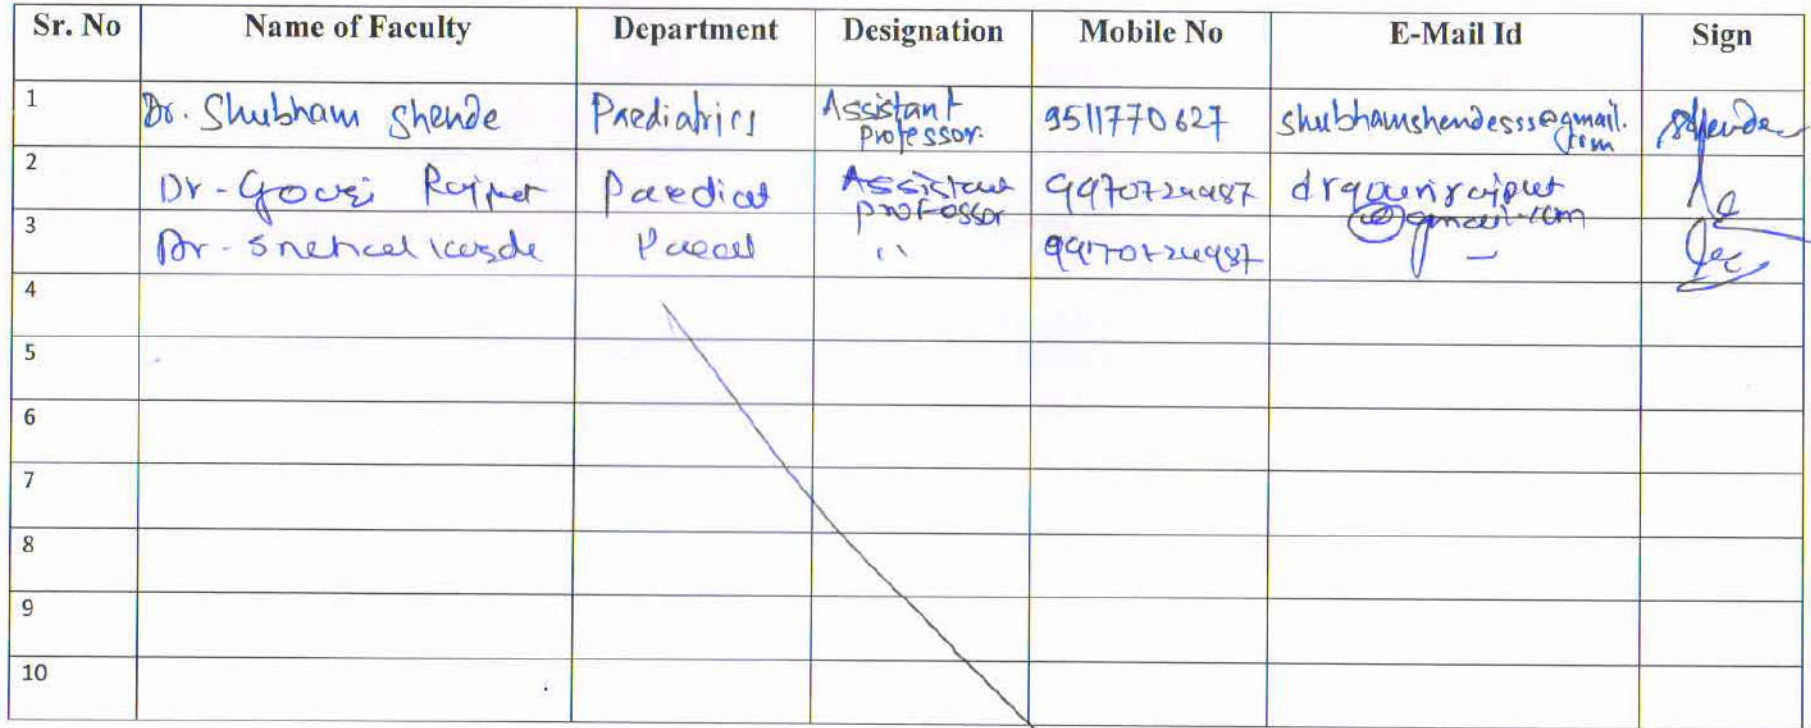 Sr. No Name of Faculty Department Designation Mobile No E-Mail Id Sign
1 Dr. Shubham Shende Paediatrics Assistant professor. 9511770627 shubhamshendesss@gmail.com Shende
2 Dr - Gouri Rajput Paediat Assistant professor drgourirajput@gmail.com
3 Dr - Snehal Paed "
4
5
6
7
8
9
10